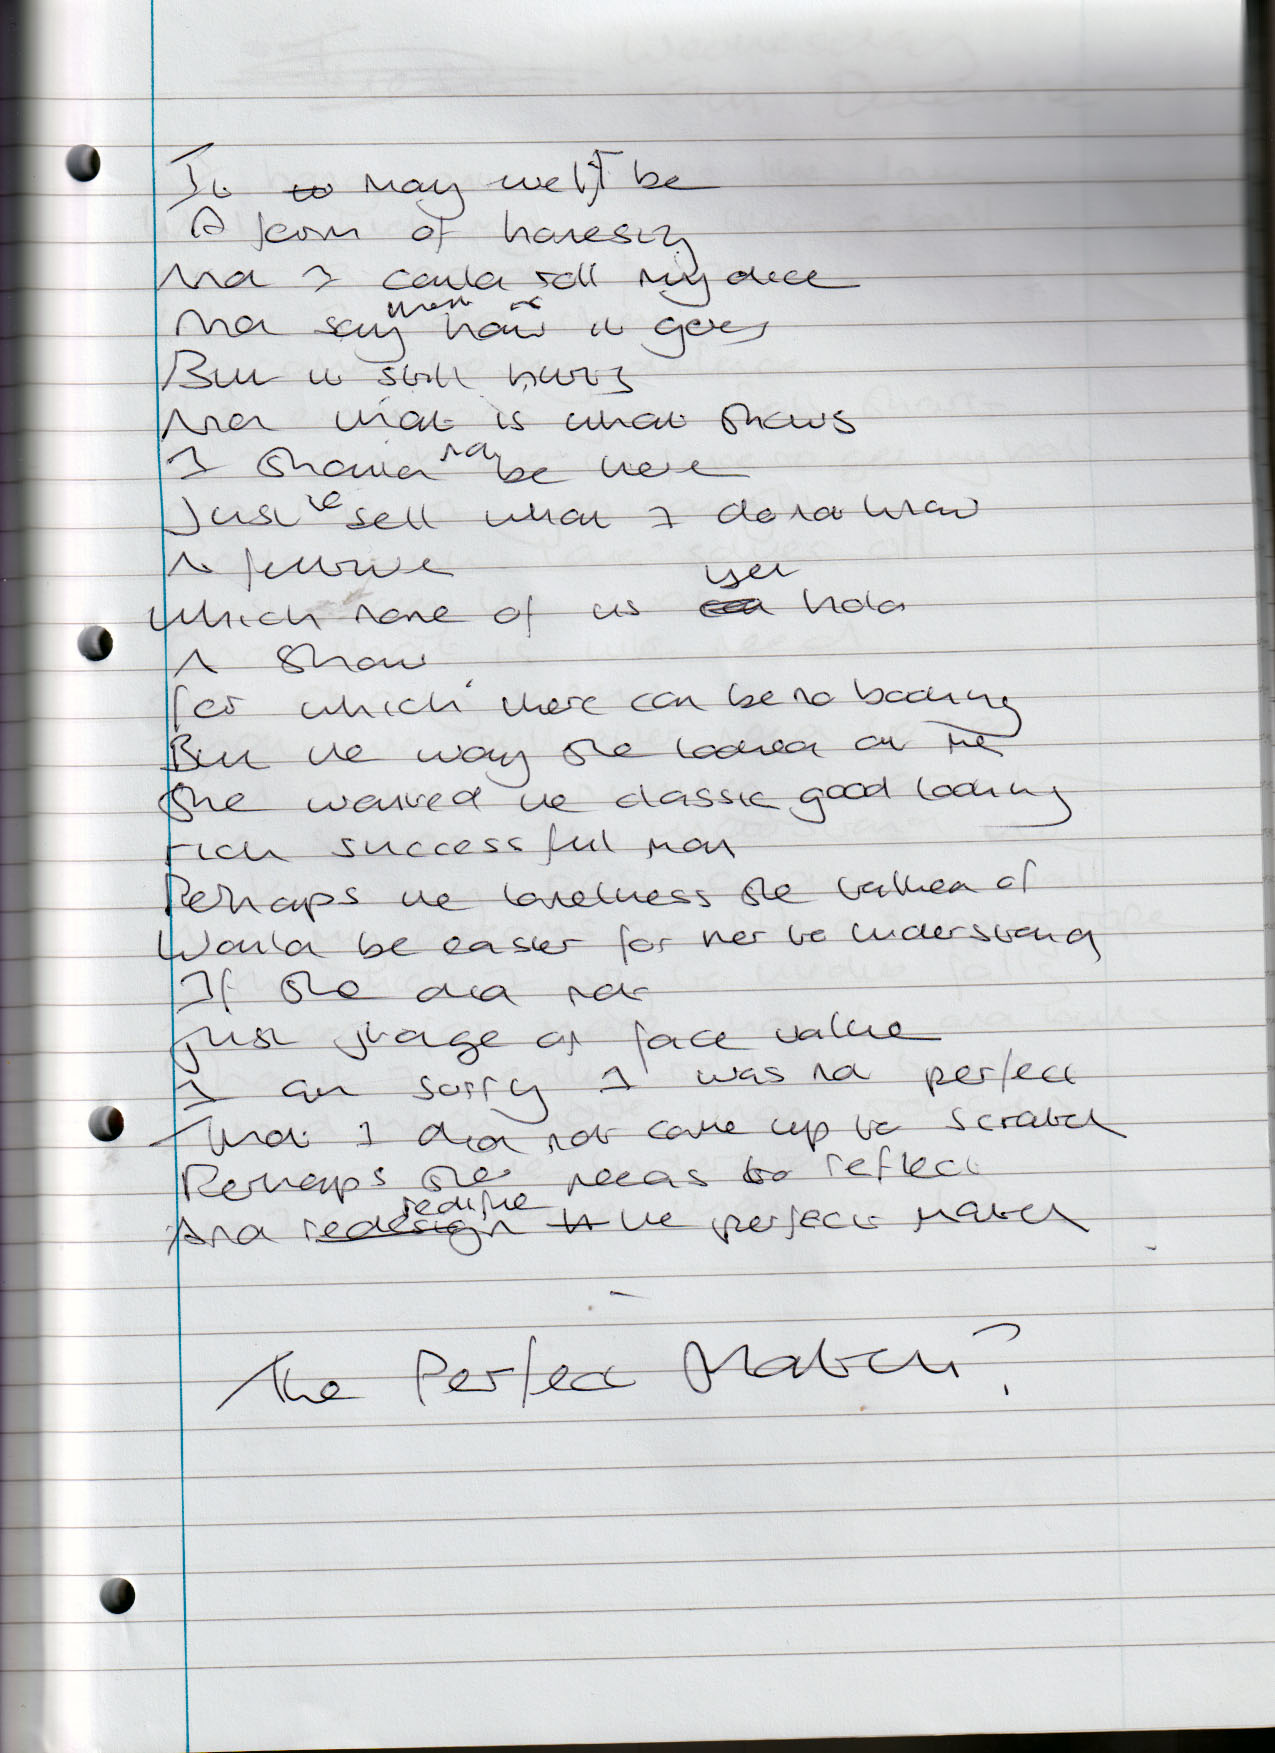 It may well be
A form of honesty
And I could roll my dice
And say then how it goes
But it still hurts
And that is what shows
I should not be here
Just to sell what I do not know
A future
Which none of us yet hold
A show
for which there can be no booking
But the way she looked at me
She wanted the classic good looking
rich successful man
Perhaps the loneliness she talked of
Would be easier for her to understand
If she did not
just judge at face value
I am sorry I was not perfect
That I did not come up to scratch
Perhaps she needs to reflect
And redesign redefine the perfect match
The Perfect Match?